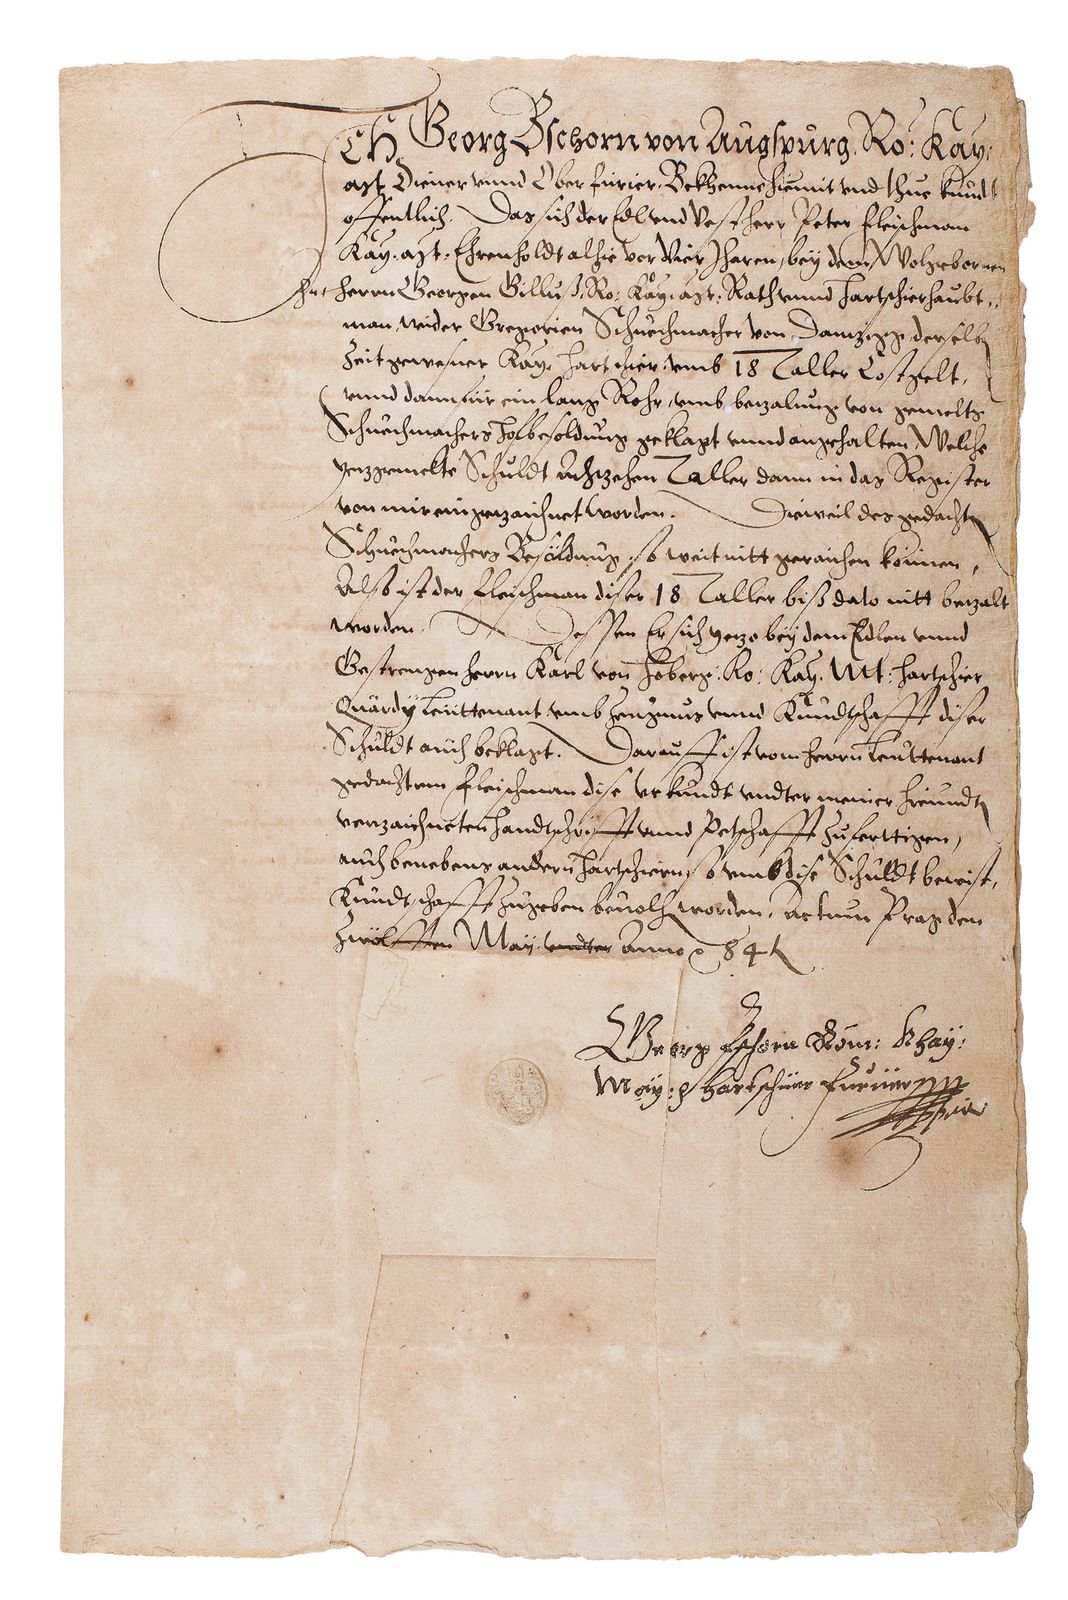 Ich Georg Bschorn von Augspurg, Ro: Kay:
Mt Diener vnnd Ober furier, Bekhenne hiemit vnd thue kundt
offentlich. Das sich der Edl vnd Vest herr Peter Fleischman
Kay. Mt: Ehrenholdt alhie vor vier Jharen, bey dem Wolgebornen
herrn Georgen Ro: Kay: Mt: Rath vnnd hartschierhaubt-
man, wider Gregorien Schuechmacher von Dantzigg, derselb
Zeit gewesner Kay: hartschier, vmb 18 Taller Costgelt,
vnnd dann für ein lang Rohr, vmb bezalung von gemelts
Schuechmachers hofbesoldung geklagt vnnd angehalten, Welche
yezgemelte Schuldt Achtzehen Taller dann in das Register
von mir eingezaichnet worden. Dieweil des gedacht
Schuechmachers Besoldung, so weit nitt geraichen können,
Also ist der Fleischman diser 18 Taller biß dato nitt bezalt
worden. Dessen Er sich yezo bey dem Edlen vnnd
Gestrengen herrn Karl von Ro: Kay. Mt: hartschier
Quardy Leuttenant, vmb Zeugnus vnnd Kundtschafft diser
Schuldt auch beklagt. Darauff ist vom herrn Leuttenant
gedachtem Fleischman dise vrkundt vndter meiner hieundt
verzaichneten handtschrifft vnnd Petschafft Zuferttigen,
auch benebens andern hartschiern, so vmb dise Schuldt bewist,
Kundtschafft Zugeben beuolh worden. Actum Prag den
Zwölfften May vndter Anno 84
Georg Pschorn Röm: Khay:
May: hartschier Furier